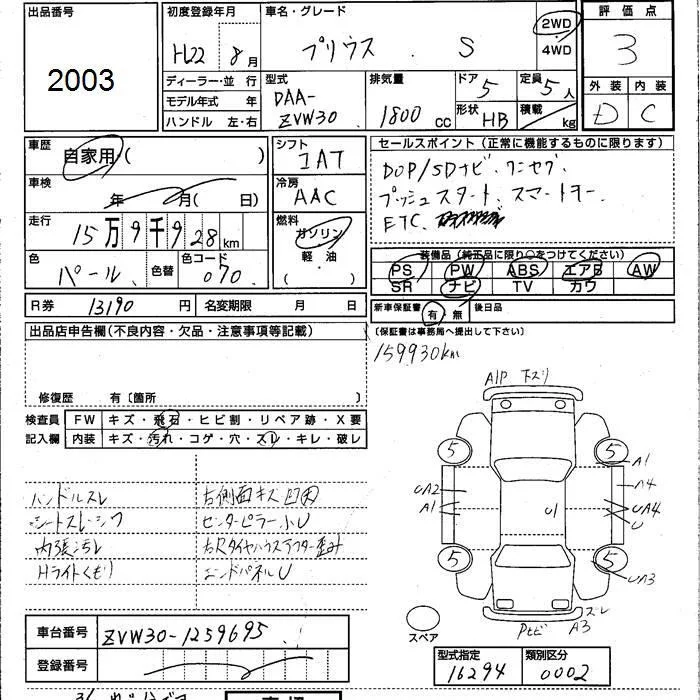 出品番号 初度登録年月 車名・グレード 評価点
2003 H22 8月 プリウス S 2WD 4WD 3
ディーラー・並行 型式 排気量 ドア 定員 外装 内装
モデル年式 年 DAA-ZVW30 1800cc 5 5人 D C
ハンドル 左・右 形状 HB 積載 kg
車歴 自家用・( ) シフト IAT セールスポイント(正常に機能するものに限ります)
車検 年 月( 日) 冷房 AAC DOP/SDナビ、ワンセグ
プッシュスタート、スマートキー
走行 15万9千928km 燃料 ガソリン・軽油( ) ETC
色 パール 色替 色コード 070 装備品(純正品に限り○をつけてください)
PS PW ABS エアB AW
SR ナビ TV カワ
R券 13190円 名変期限 月 日 新車保証書 有・無 後日品
出品店申告欄(不良内容・欠品・注意事項等記載) (保証書は事務局へ提出して下さい)
159930km
修復歴 有〔箇所 〕
検査員 FW キズ・飛石・ヒビ割・リペア跡・X要
記入欄 内装 キズ・汚れ・コゲ・穴・スレ・キレ・破レ
A1P 下スリ
5 5
A1
UA2 A4
A1 U UA4
U
5 5
UA3
スレ
Pヒビ A3
スペア
ハンドルスレ 右側面キズ凹
シートスレシワ センターピラー小U
内張汚レ 右Rタイヤハウスアフター歪み
Hライトくもり エンドパネルU
車台番号 ZVW30-1259695
登録番号
型式指定 類別区分
16294 0002